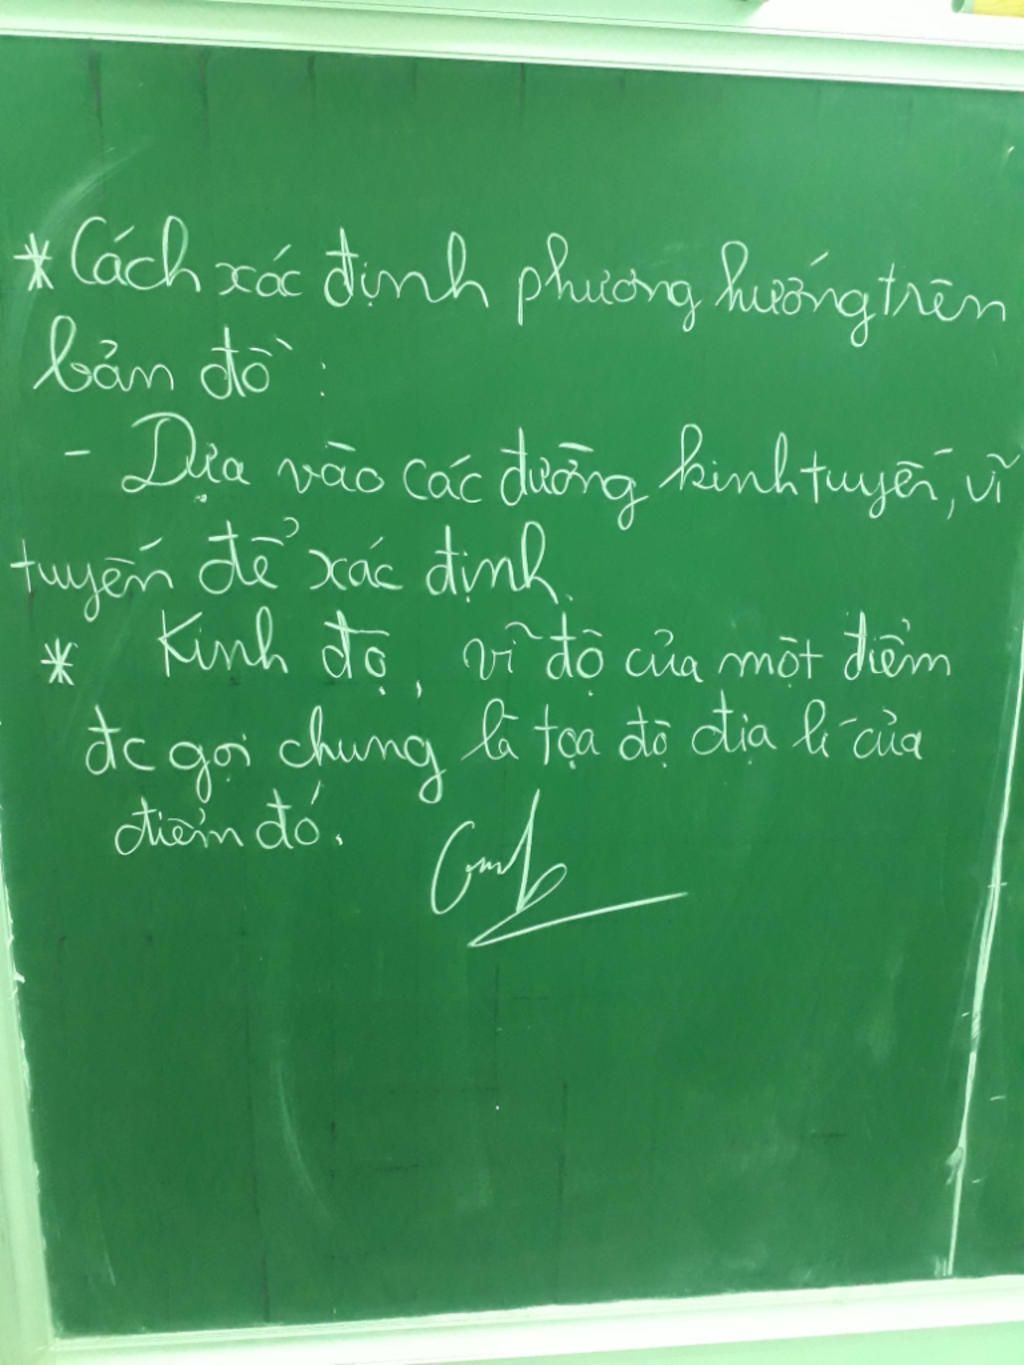 * Cách xác định phương hướng trên
bản đồ :
- Dựa vào các đường kinh tuyến, vĩ
tuyến để xác định.
* Kinh độ, vĩ độ của một điểm
đc gọi chung là tọa độ địa lí của
điểm đó.